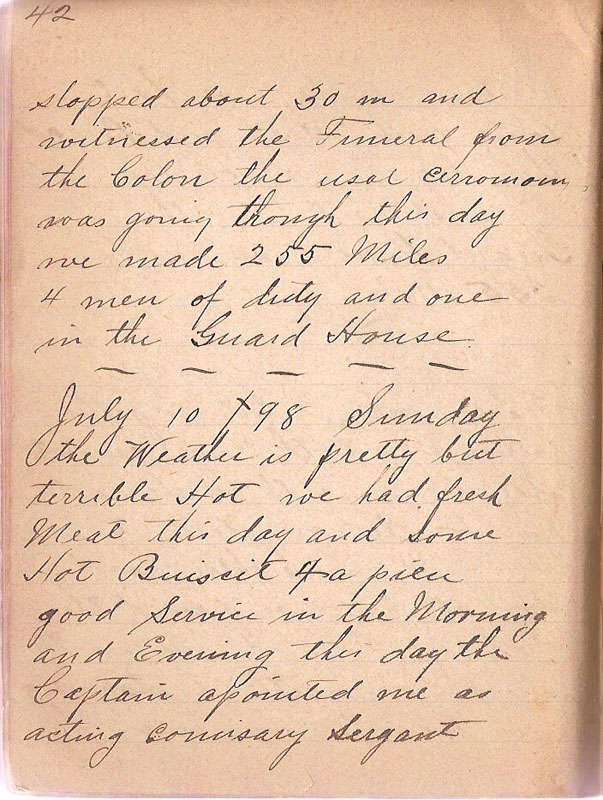 42
stopped about 30 m and
witnessed the Funeral from
the Colon the usal cerromony
was goniy though this day
we made 255 Miles
4 men of duty and one
in the Guard House
July 10 /98 Sunday
the Weather is pretty but
terrible Hot we had fresh
Meat this day and some
Hot Buissit 4 a piece
good Service in the Morning
and Evening this day the
Captain apointed me as
acting comisary Sergant